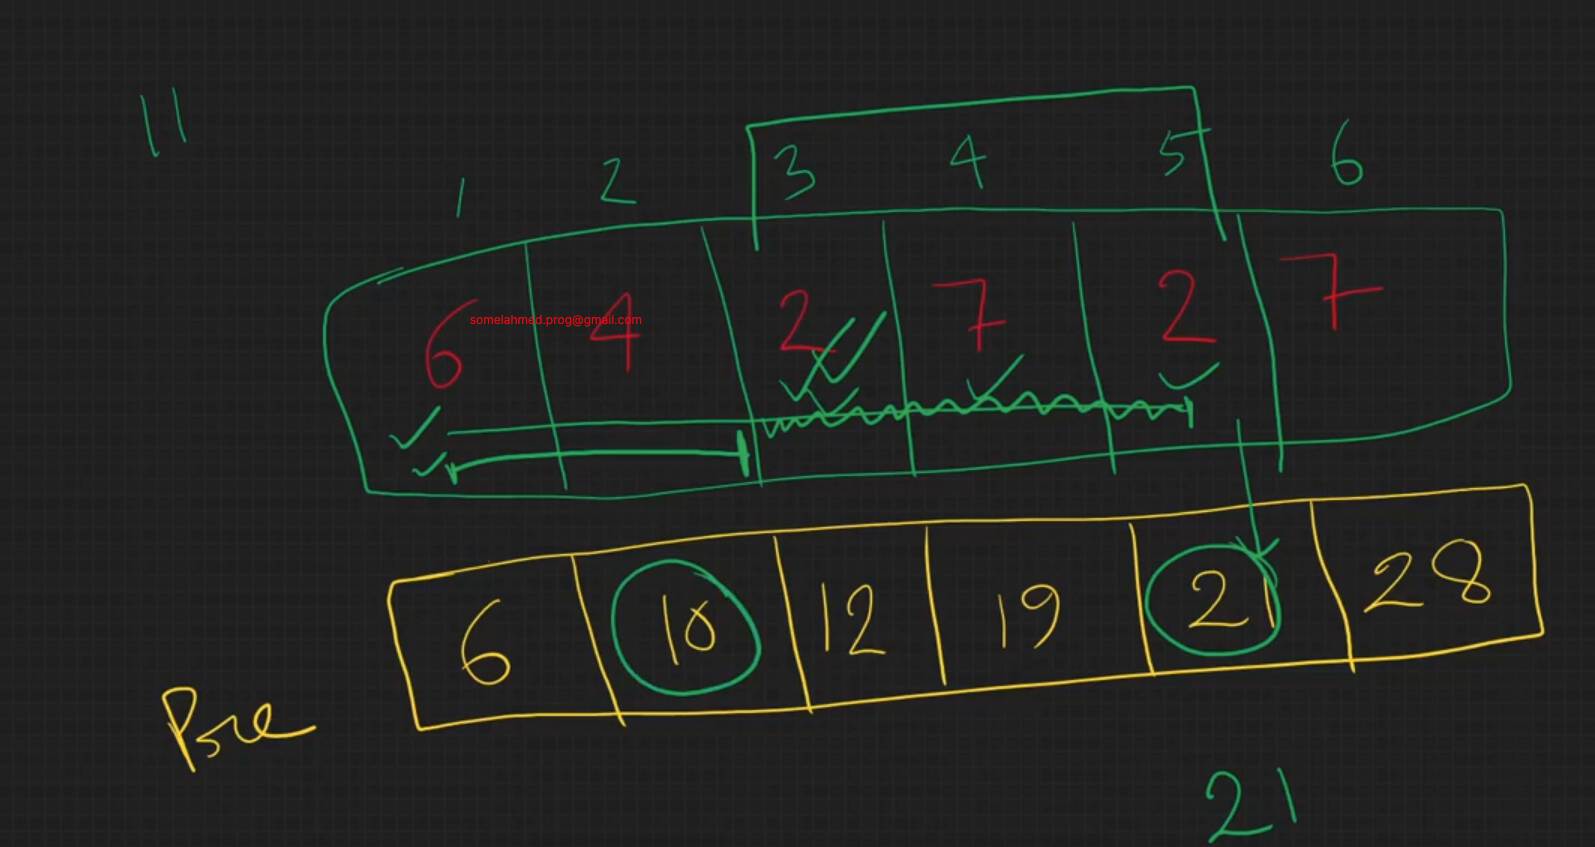 11
1 2 3 4 5 6
6 4 2 7 2 7
somelahmed.prog@gmail.com
6 10 12 19 21 28
Pre
21